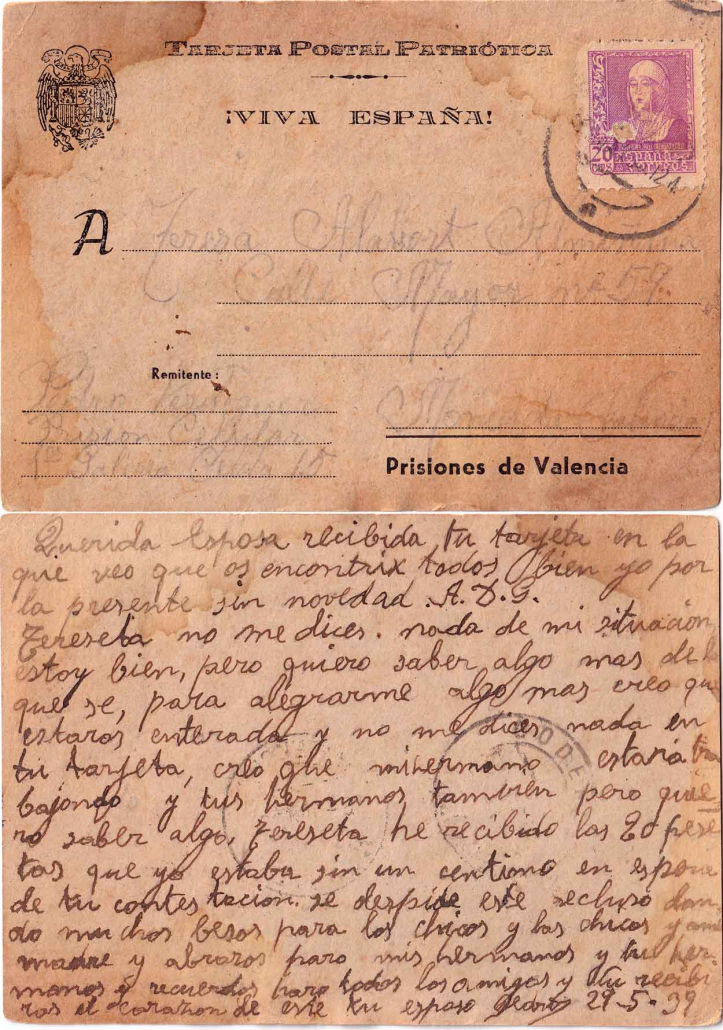 TARJETA POSTAL PATRIÓTICA
¡VIVA ESPAÑA!
20
ESPAÑA
CORREOS
A Teresa Alabort
Calle Mayor nº 59
Remitente:
Pedro
Prision Celular
Prisiones de Valencia
Querida Esposa recibida, tu tarjeta en la
que veo que os encontrix todos bien yo por
la presente sin novedad. A. D. G.
Tereseta no me dices. nada de mi situación
estoy bien, pero quiero saber algo mas de lo
que se, para alegrarme algo mas creo que
estaros enterada y no me dices nada en
tu tarjeta, creo que mihermano estara tra
bajondo y tus hermanos tambien pero quie
ro saber algo. Tereseta he recibido las 20 pese
tas que yo estaba sin un centimo en espera
de tu contestacion. se despide este recluso dan
do muchos besos para los chicos y las chicas y ami
madre y abrazos para mis hermanos y tus her-
manos y recuerdos para todos los amigos y tu recibi
ras el corazon de este tu esposo Pedro 29-5-39